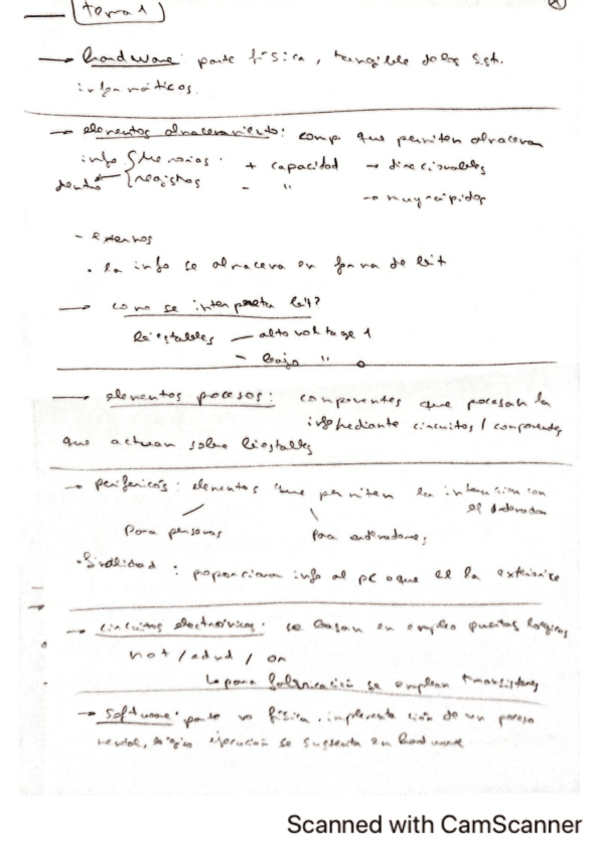 tema 1
→ hardware: parte física, tangible de los sist.
informáticos.
→ elementos almacenamiento: comp. que permiten almacenar
info { Memorias. + capacidad → direccionables
dentro { registros - " → muy rápidos
- externos
. la info se almacena en forma de bit
→ como se interpreta bit?
biestables — alto voltage 1
- bajo " 0
→ elementos procesos: componentes que procesan la
info mediante circuitos / componentes
que actuan sobre biestables
→ periféricos: elementos que permiten la interaccion con
el ordenador
para personas para ordenadores
. finalidad: proporcionan info al pc o que el la exteriorice
→ circuitos electrónicos. se basan en empleo puertas logicas
not / and / or
para fabricación se emplean transistores
→ software: parte no física. implementación de un proceso
mental, ejecución se sustenta en hardware
Scanned with CamScanner